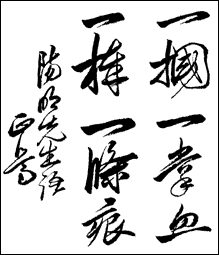 一摑一掌血
一棒一條痕
陽明先生語
正篤